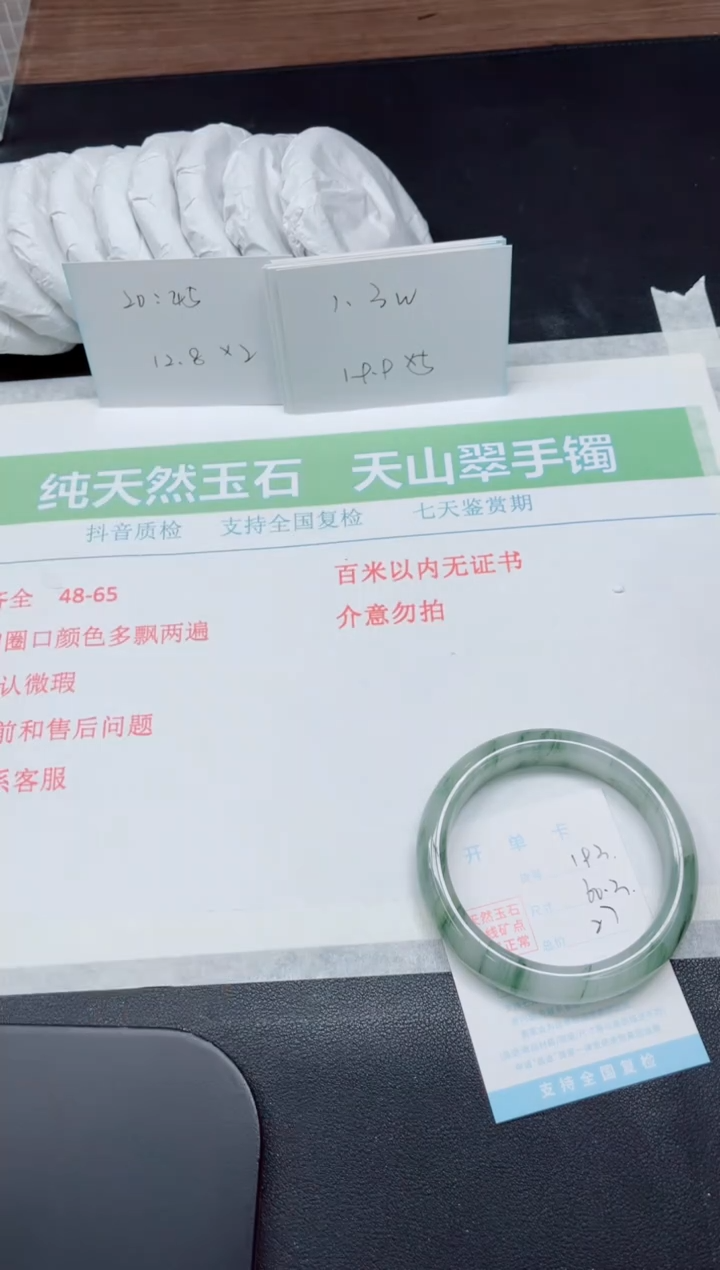 20:45
12.8 ×2
1.3W
19.9 ×5
纯天然玉石 天山翠手镯
抖音质检 支持全国复检 七天鉴赏期
齐全 48-65
圈口颜色多飘两遍
认微瑕
前和售后问题
系客服
百米以内无证书
介意勿拍
开单卡
193.
尺寸 60.3.
总价 ×7
天然玉石
线矿点
正常
支持全国复检